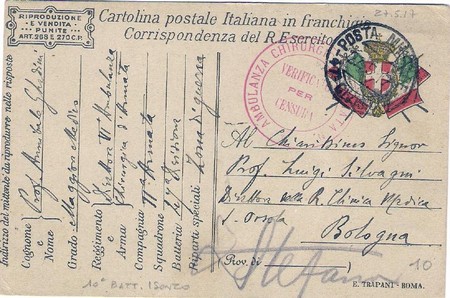 RIPRODUZIONE
E VENDITA
PUNITE
ART. 268 E 270 C.P.
Cartolina postale Italiana in franchigia
Corrispondenza del R. Esercito
27.5.17
POSTA
AMBULANZA CHIRURG
VERIFIC
PER
CENSURA
Indirizzo del mittente da riprodurre nello risposte
Cognome e Nome Prof. Annibale Ghedini
Grado Maggiore Medico
Reggimento Direttore Ambulanza
Arma Chirurgica d'Armata
Compagnia Armata
Squadrone Divisione
Batteria
Riparti speciali Zona di guerra
Al Chiarissimo Signor
Prof. Luigi Silvagni
Direttore della R. Clinica Medica
S. Orsola
Bologna
Prov. di
10
10° BATT. ISONZO
E. TRAPANI - ROMA.